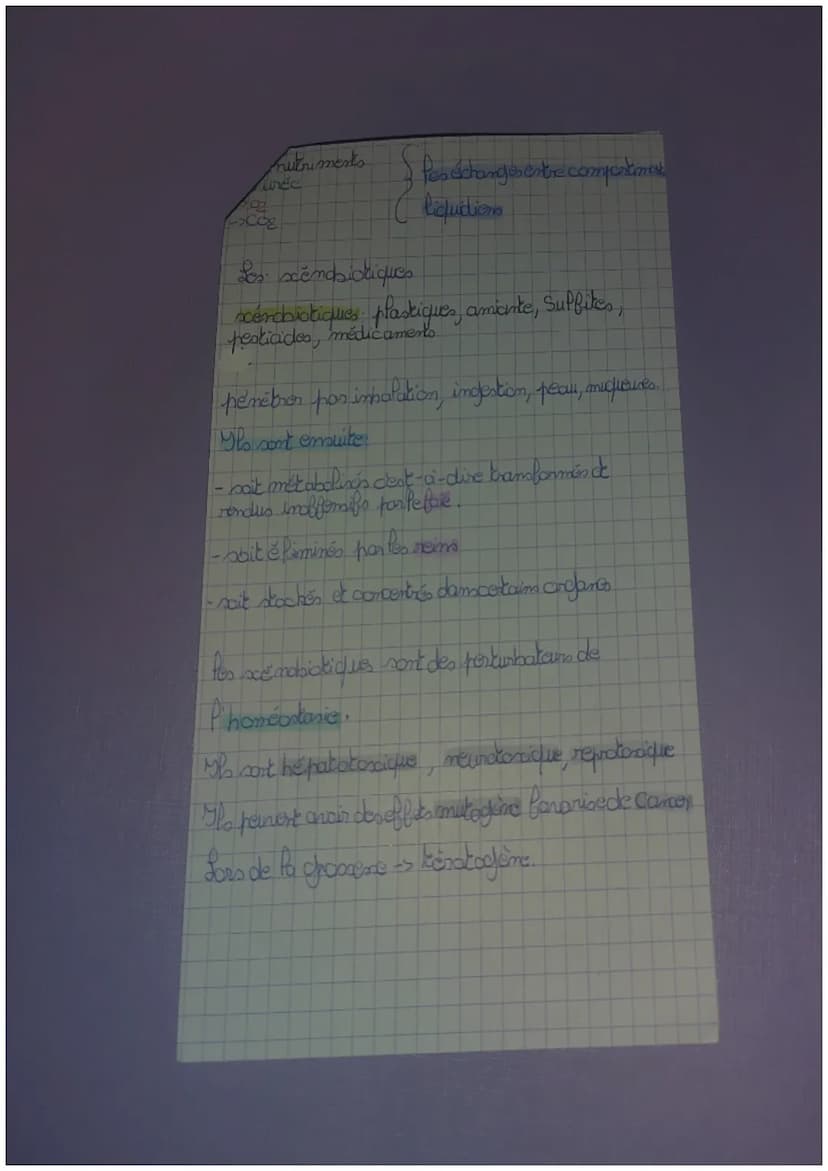 nutriments
urée
O2
→CO2
{ les échanges entre compartiment
liquidiens
Les xénobiotiques
xénobiotiques: plastiques, amiante, sulfites,
pesticides, médicaments
pénètren par inhalation, ingestion, peau, muqueuses.
Ils sont ensuite:
- soit métabolisés c'est-à-dire transformés et
rendus inoffensifs par le foie.
- soit éliminés par les reins
- soit stockés et concentrés dans certains organes
les xénobiotiques sont des perturbateurs de
l'homéostasie.
Ils sont hépatotoxique, neurotoxique, reprotoxique
Ils peuvent avoir des effets mutagène cancer
Lors de la grossesse -> tératogène.